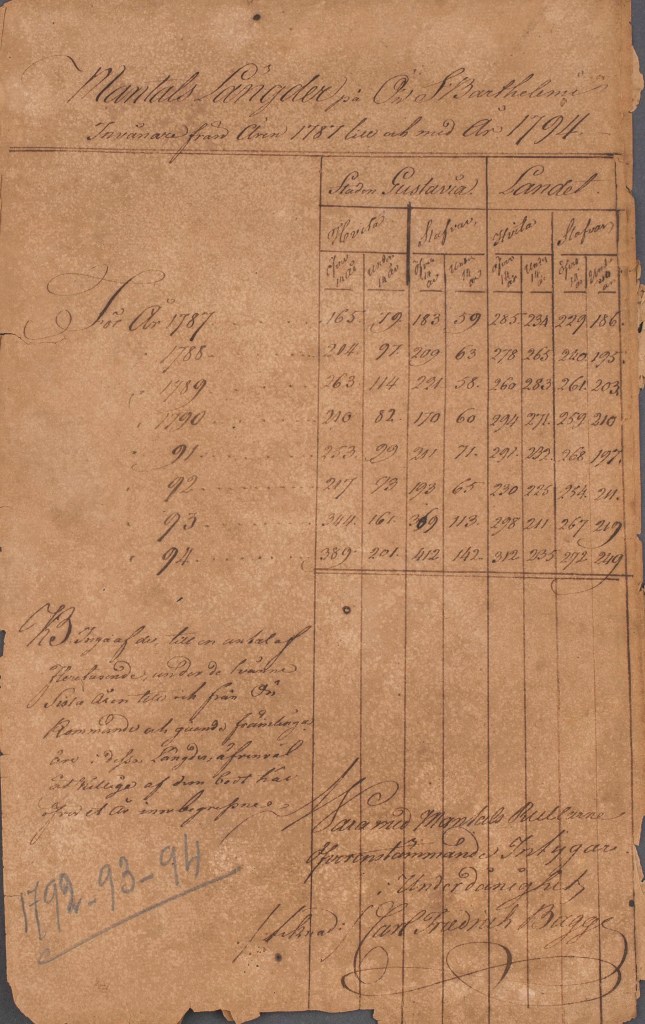 Mantals Längder på Ön St Barthelemi
Invånare från Åren 1787 till och med År 1794.
Staden Gustavia. Landet.
Hvita Slafvar, Hvita Slafvar
öfver 14 år under 14 år öfver 14 år under 14 år öfver 14 år under 14 år öfver 14 år under 14 år
För År 1787 165. 79 183 59 285. 234 229 186.
1788 204. 97 209 63 278 265 220 195.
1789 263. 114 221 58. 260 283 261. 203
1790 210 82. 170 60 294 271. 259. 210
91 253. 99 211 71. 291. 292 268. 197.
92 217 73 193 65 230 225 254. 211.
93 344 161 369 113. 298 211 267 219
94. 389 201. 412 142. 312 235 272. 249
NB Ingen af de, till en antal af
under de tvänne
Sista Åren till och från Ön
kommande och
bor i desse Längder, äfvenväl
af dem bort har
öfver et År
Vara med Mantals Rullorne
öfverensstämmande Intygar
i Underdånighet,
teknad: Carl Fredrich Bagge
1792-93-94